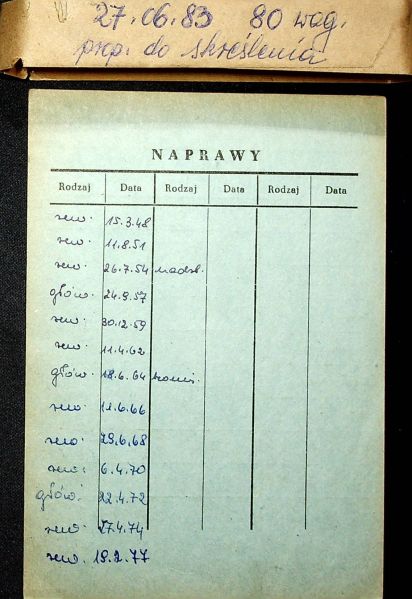 27.06.83 80 wag.
prop. do skreślenia
NAPRAWY
Rodzaj Data Rodzaj Data Rodzaj Data
rew. 15.3.48
rew. 11.8.51
rew. 26.7.54 nadzw.
głów. 24.9.57
rew. 30.12.59
rew. 11.4.62
głów. 18.6.64
rew. 11.6.66
rew. 29.6.68
rew. 6.4.70
głów. 22.4.72
rew. 27.4.74
rew. 19.2.77